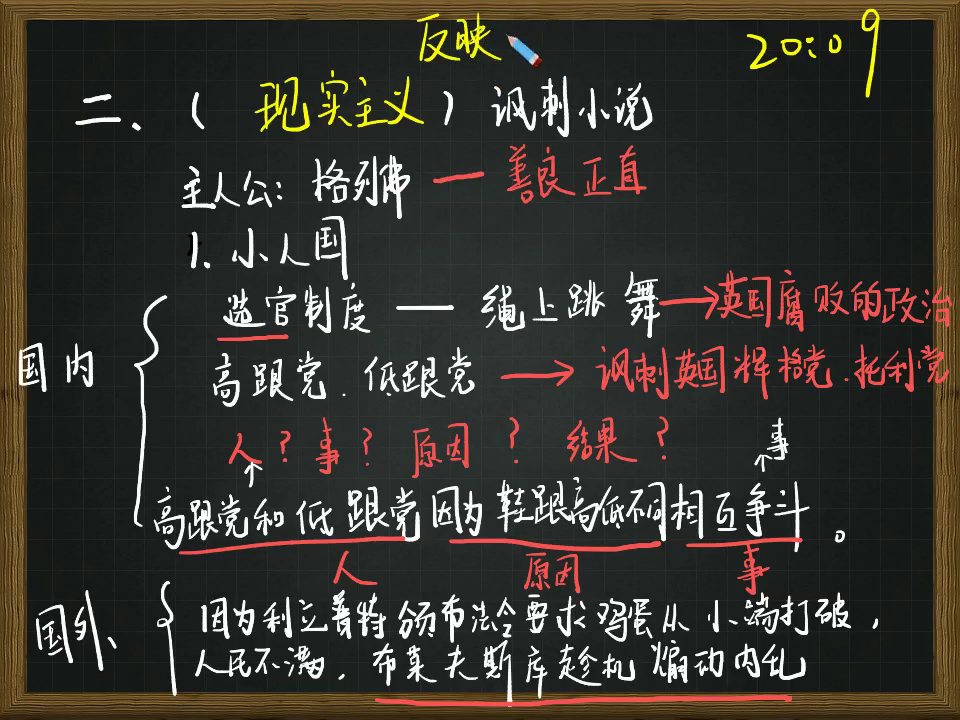 反映
20:09
二、（现实主义）讽刺小说
主人公：格列佛 — 善良正直
1. 小人国
选官制度 — 绳上跳舞 → 英国腐败的政治
国内
高跟党、低跟党 → 讽刺英国辉格党、托利党
人？事？原因？结果？
事
高跟党和低跟党因为鞋跟高低不同相互争斗。
人 原因 事
国外、
因为利立普特颁布法令要求鸡蛋从小端打破，
人民不满，布莱夫斯库趁机煽动内乱